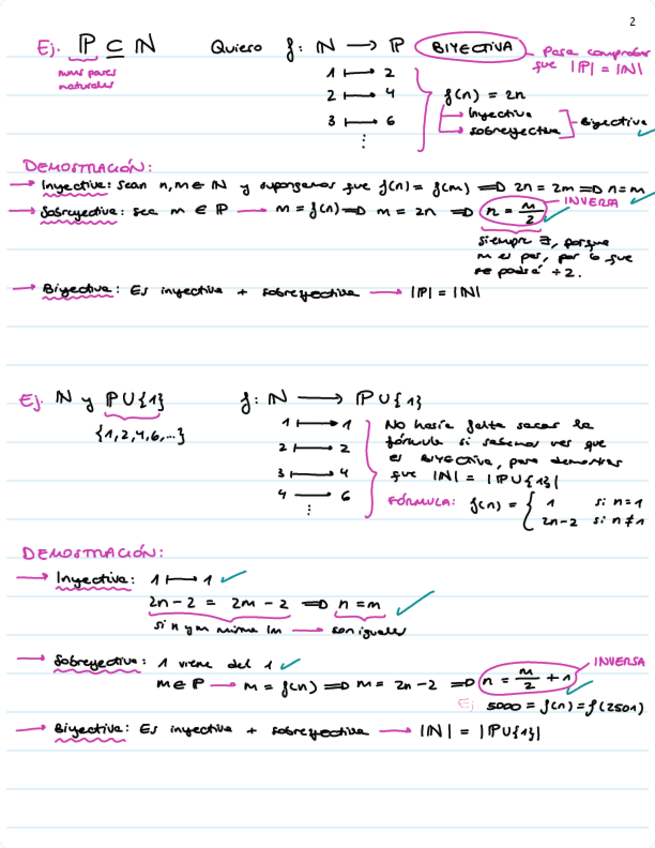 2
Ej. ℙ ⊆ ℕ Quiero f: ℕ → ℙ BIYECTIVA Para comprobar que |ℙ| = |ℕ|
nums pares naturales
1 ↦ 2
2 ↦ 4
3 ↦ 6
⋮
f(n) = 2n
→ Inyectiva
→ sobreyectiva
Biyectiva ✓
DEMOSTRACIÓN:
→ Inyectiva: Sean n, m ∈ ℕ y supongamos que f(n) = f(m) ⇒ 2n = 2m ⇒ n = m ✓
→ Sobreyectiva: sea m ∈ ℙ → m = f(n) ⇒ m = 2n ⇒ n = m/2 INVERSA ✓
siempre ∃, porque
m es par, por lo que
se podrá ÷ 2.
→ Biyectiva: Es inyectiva + sobreyectiva → |ℙ| = |ℕ|
Ej. ℕ y ℙ∪{1} f: ℕ → ℙ∪{1}
{1,2,4,6,...}
1 ↦ 1
2 ↦ 2
3 ↦ 4
4 ↦ 6
⋮
No hacía falta sacar la
fórmula si sabemos ver que
es BIYECTIVA, para demostrar
que |ℕ| = |ℙ∪{1}|
FÓRMULA: f(n) = { 1 si n=1
2n-2 si n≠1
DEMOSTRACIÓN:
→ Inyectiva: 1 ↦ 1 ✓
2n - 2 = 2m - 2 ⇒ n = m ✓
si n y m misma Im → son iguales
→ Sobreyectiva: 1 viene del 1 ✓
m ∈ P → m = f(n) ⇒ m = 2n - 2 ⇒ n = m/2 + 1 INVERSA ✓
Ej 5000 = f(n) = f(2501)
→ Biyectiva: Es inyectiva + sobreyectiva → |ℕ| = |ℙ∪{1}|